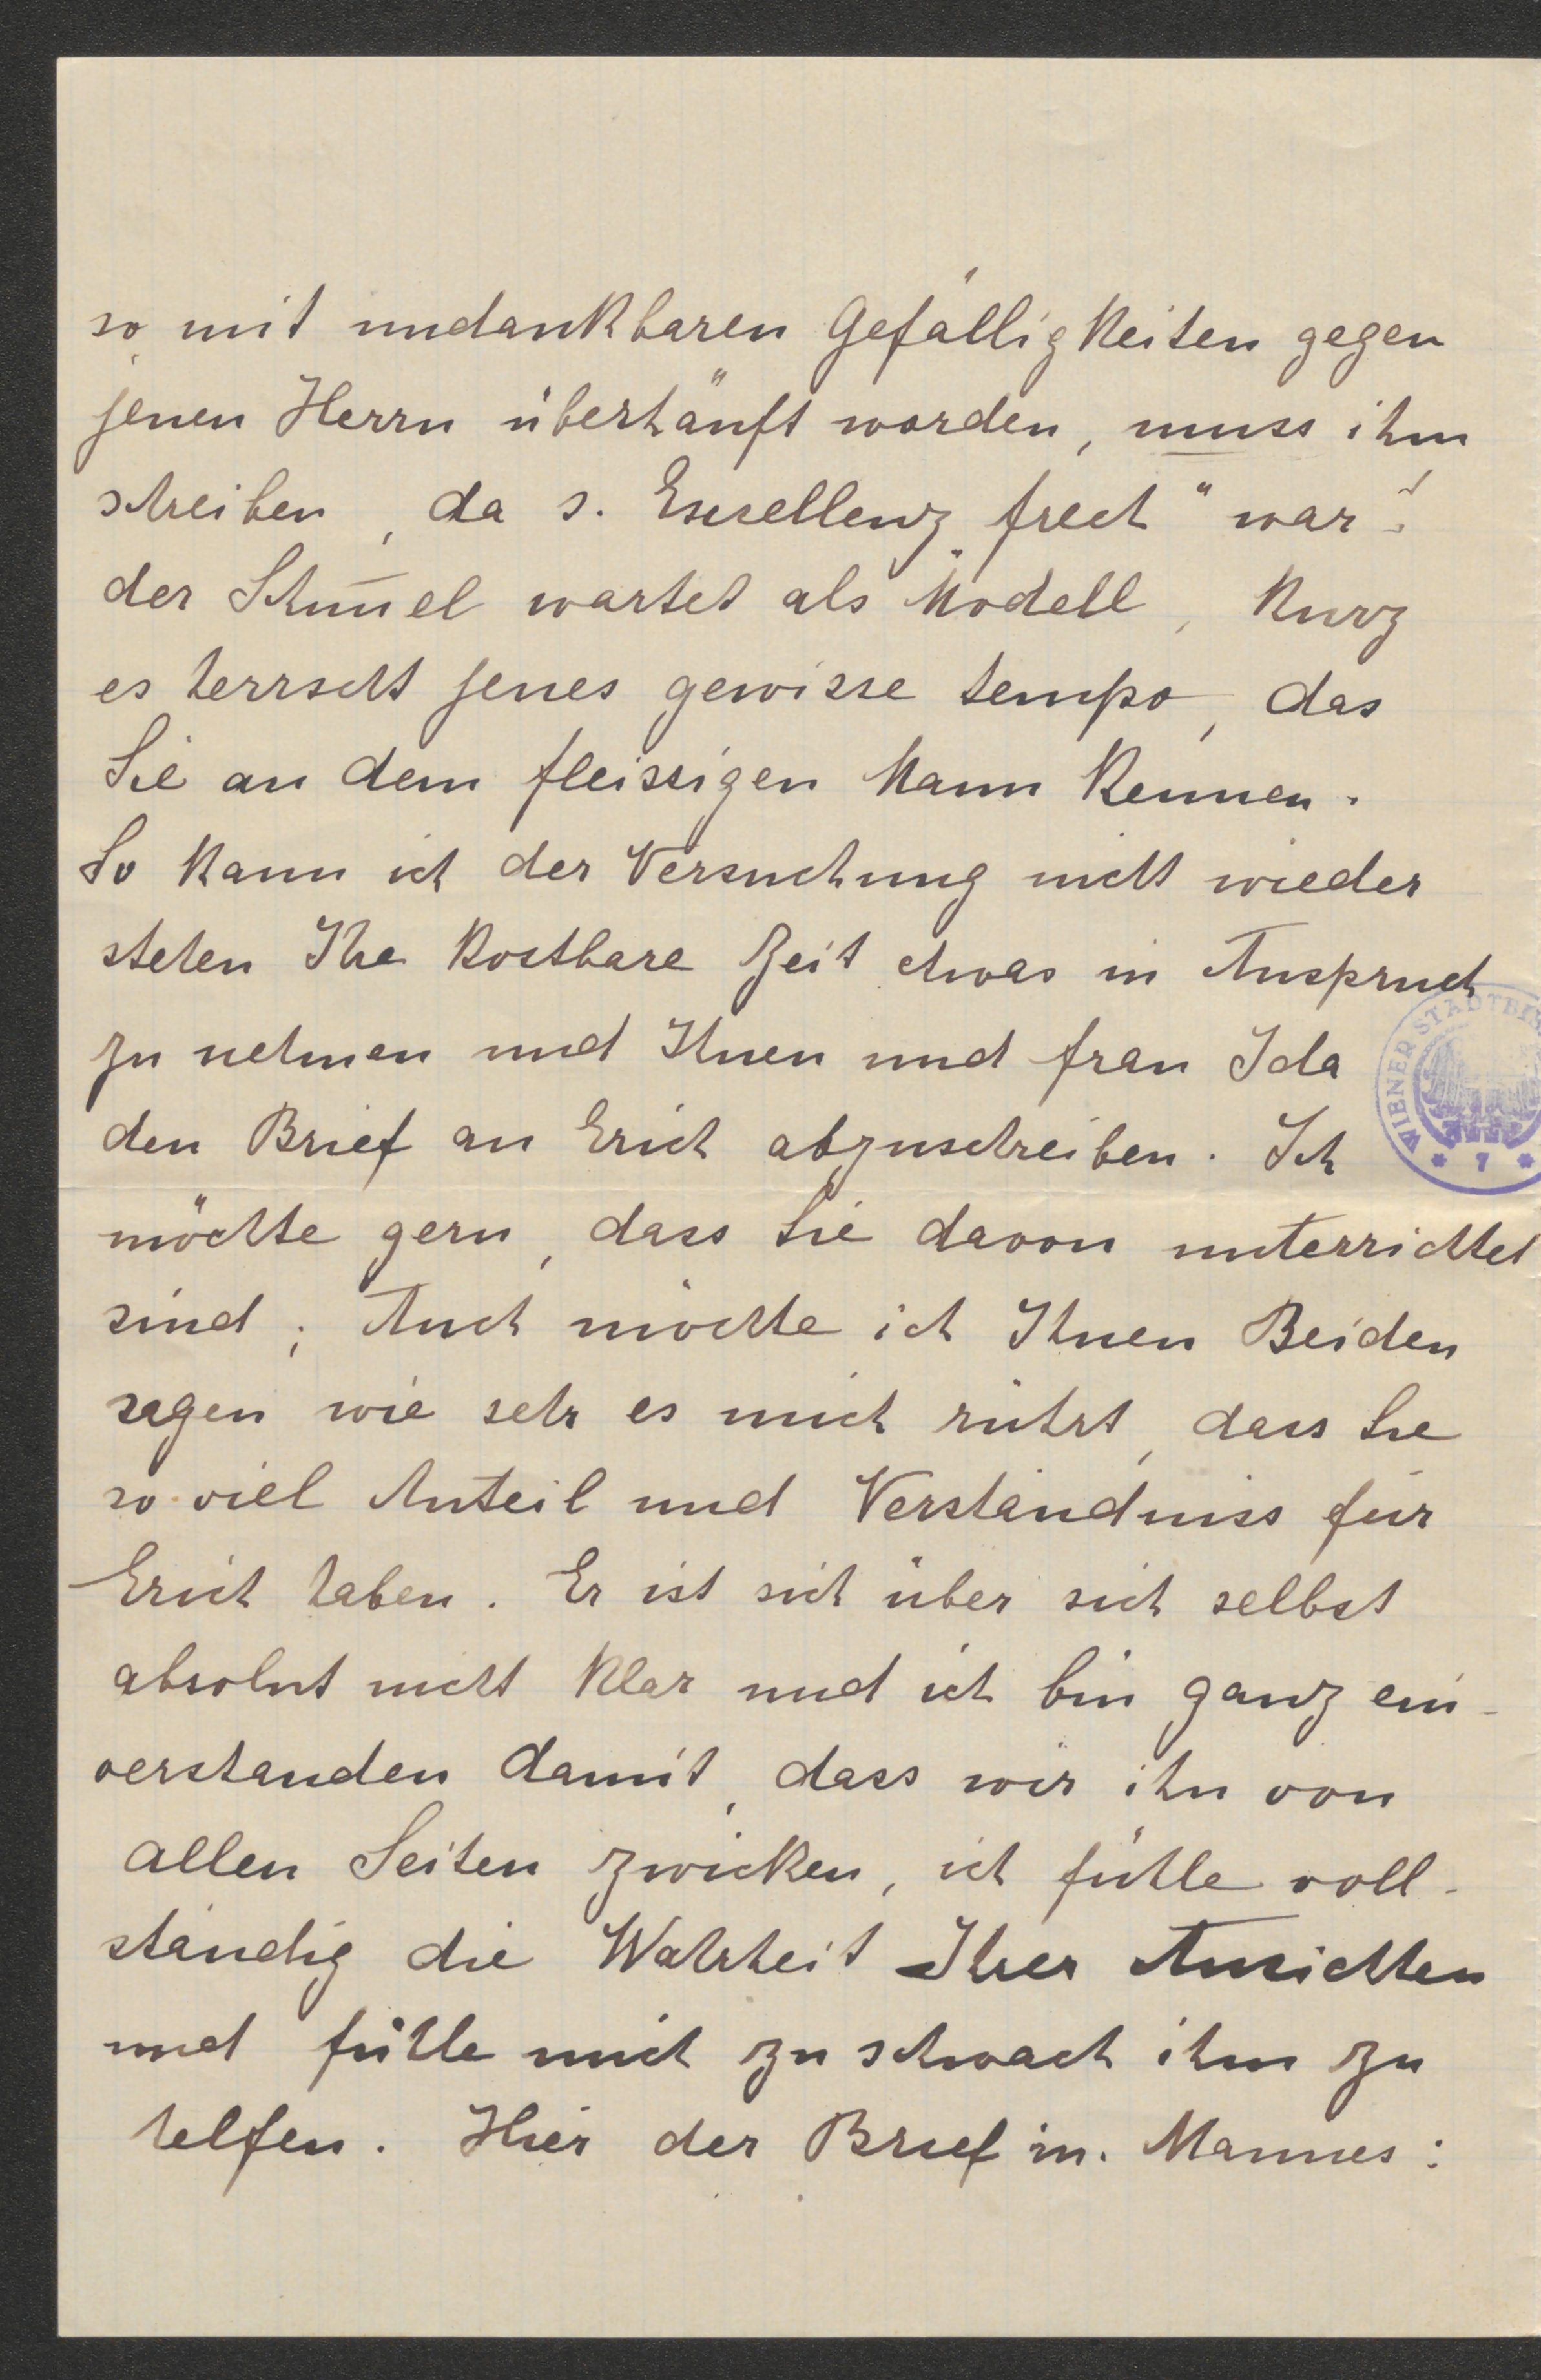 so mit undankbaren Gefälligkeiten gegen
jenen Herrn überhäuft worden, muss ihm
schreiben, da s. Exsellenz frech" war!
der Schim̄el wartet als Modell, kurz
es herrscht jenes gewisse tempo, das
Sie an dem fleissigen Mann kennen.
So kann ich der Versuchung nicht wieder
stehen Ihre kostbare Zeit etwas in Anspruch
zu nehmen und Ihnen und frau Ida
den Brief an Erich abzuschreiben. Ich
möchte gern, dass Sie davon unterrichtet
sind; Auch möchte ich Ihnen Beiden
sagen wie sehr es mich rührt, dass Sie
so viel Anteil und Verständniss für
Erich haben. Er ist sich über sich selbst
absolut nicht klar und ich bin ganz ein-
verstanden damit, dass wir ihn von
allen Seiten zwicken, ich fühle voll-
ständig die Wahrheit Ihrer Ansichten
und fühle mich zu schwach ihm zu
helfen. Hier der Brief m. Mannes:
WIENER STADTBI
* 7 *